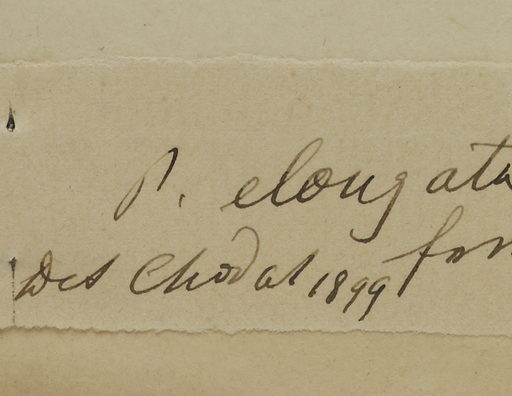 P. elongata
for
Det Chodat 1899